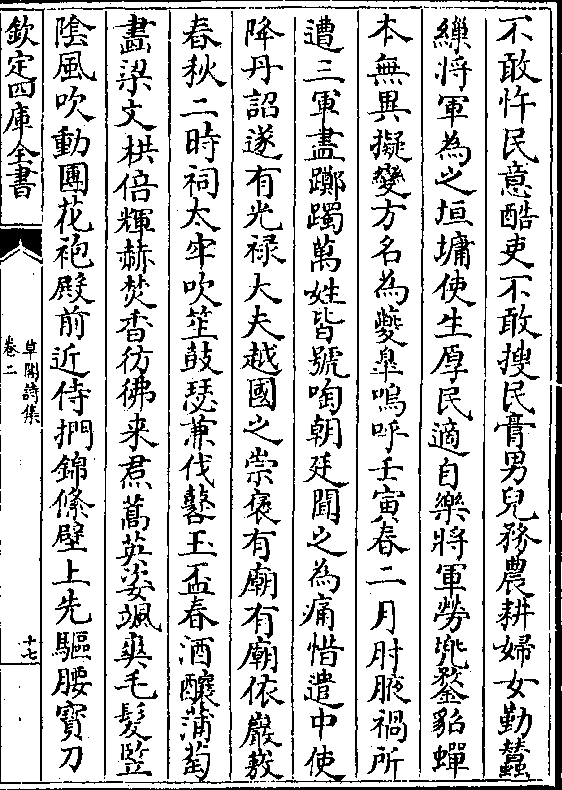 不敢忤民意酷吏不敢搜民膏男兒務農耕婦女勤蠶
繅將軍為之垣墉使生厚民適自樂將軍勞兜鍪貂蟬
本無異擬變方名為夔臯嗚呼壬寅春二月肘腋禍所
遭三軍盡躑躅萬姓皆號咷朝廷聞之為痛惜遣中使
降丹詔遂有光禄大夫越國之崇褒有廟有廟依巖敖
春秋二時祠太牢吹笙鼓瑟兼伐鼛玉盃春酒釀蒲萄
畵梁文栱倍輝赫焚香彷彿来焄蒿英姿颯爽毛髮竪
隂風吹動團花袍殿前近侍捫錦絛壁上先驅腰寳刀
欽定四庫全書
草閣詩集
卷二
十七